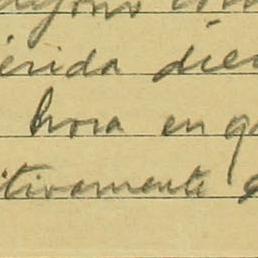 érida die
hora en q
itivamente